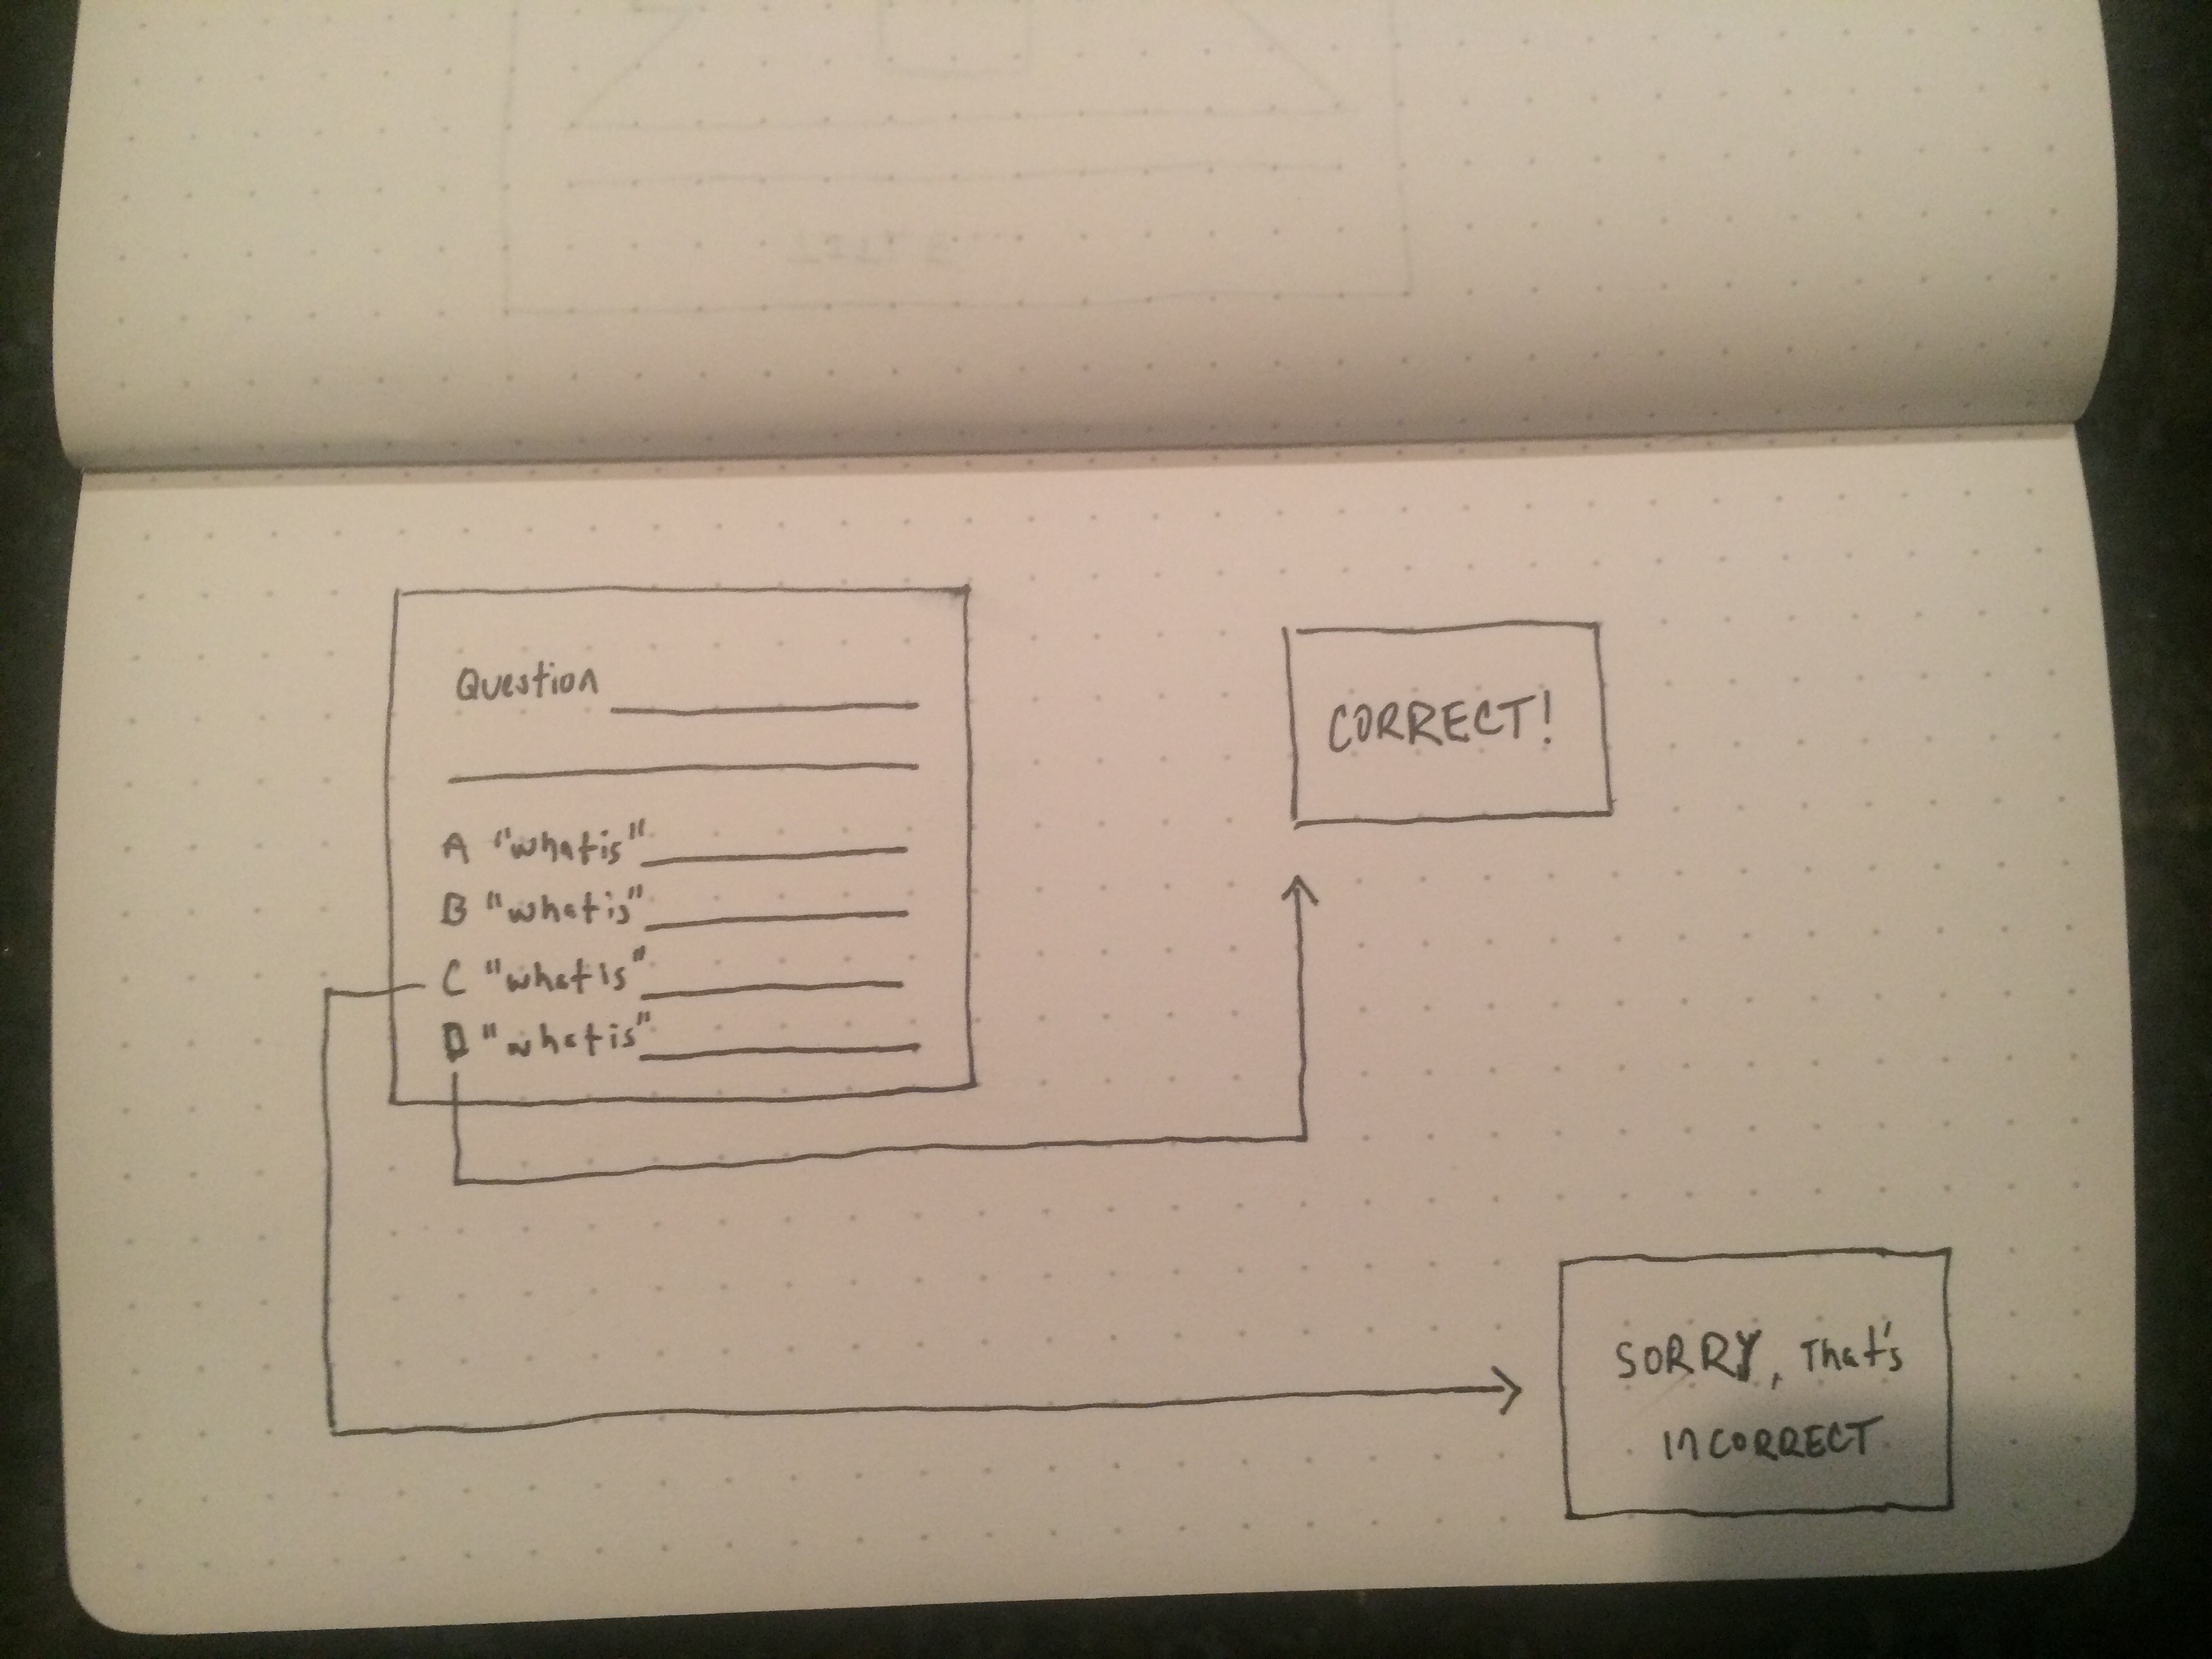 Question
A "what is"
B "what is"
C "what is"
D "what is"
CORRECT!
SORRY, That's
INCORRECT